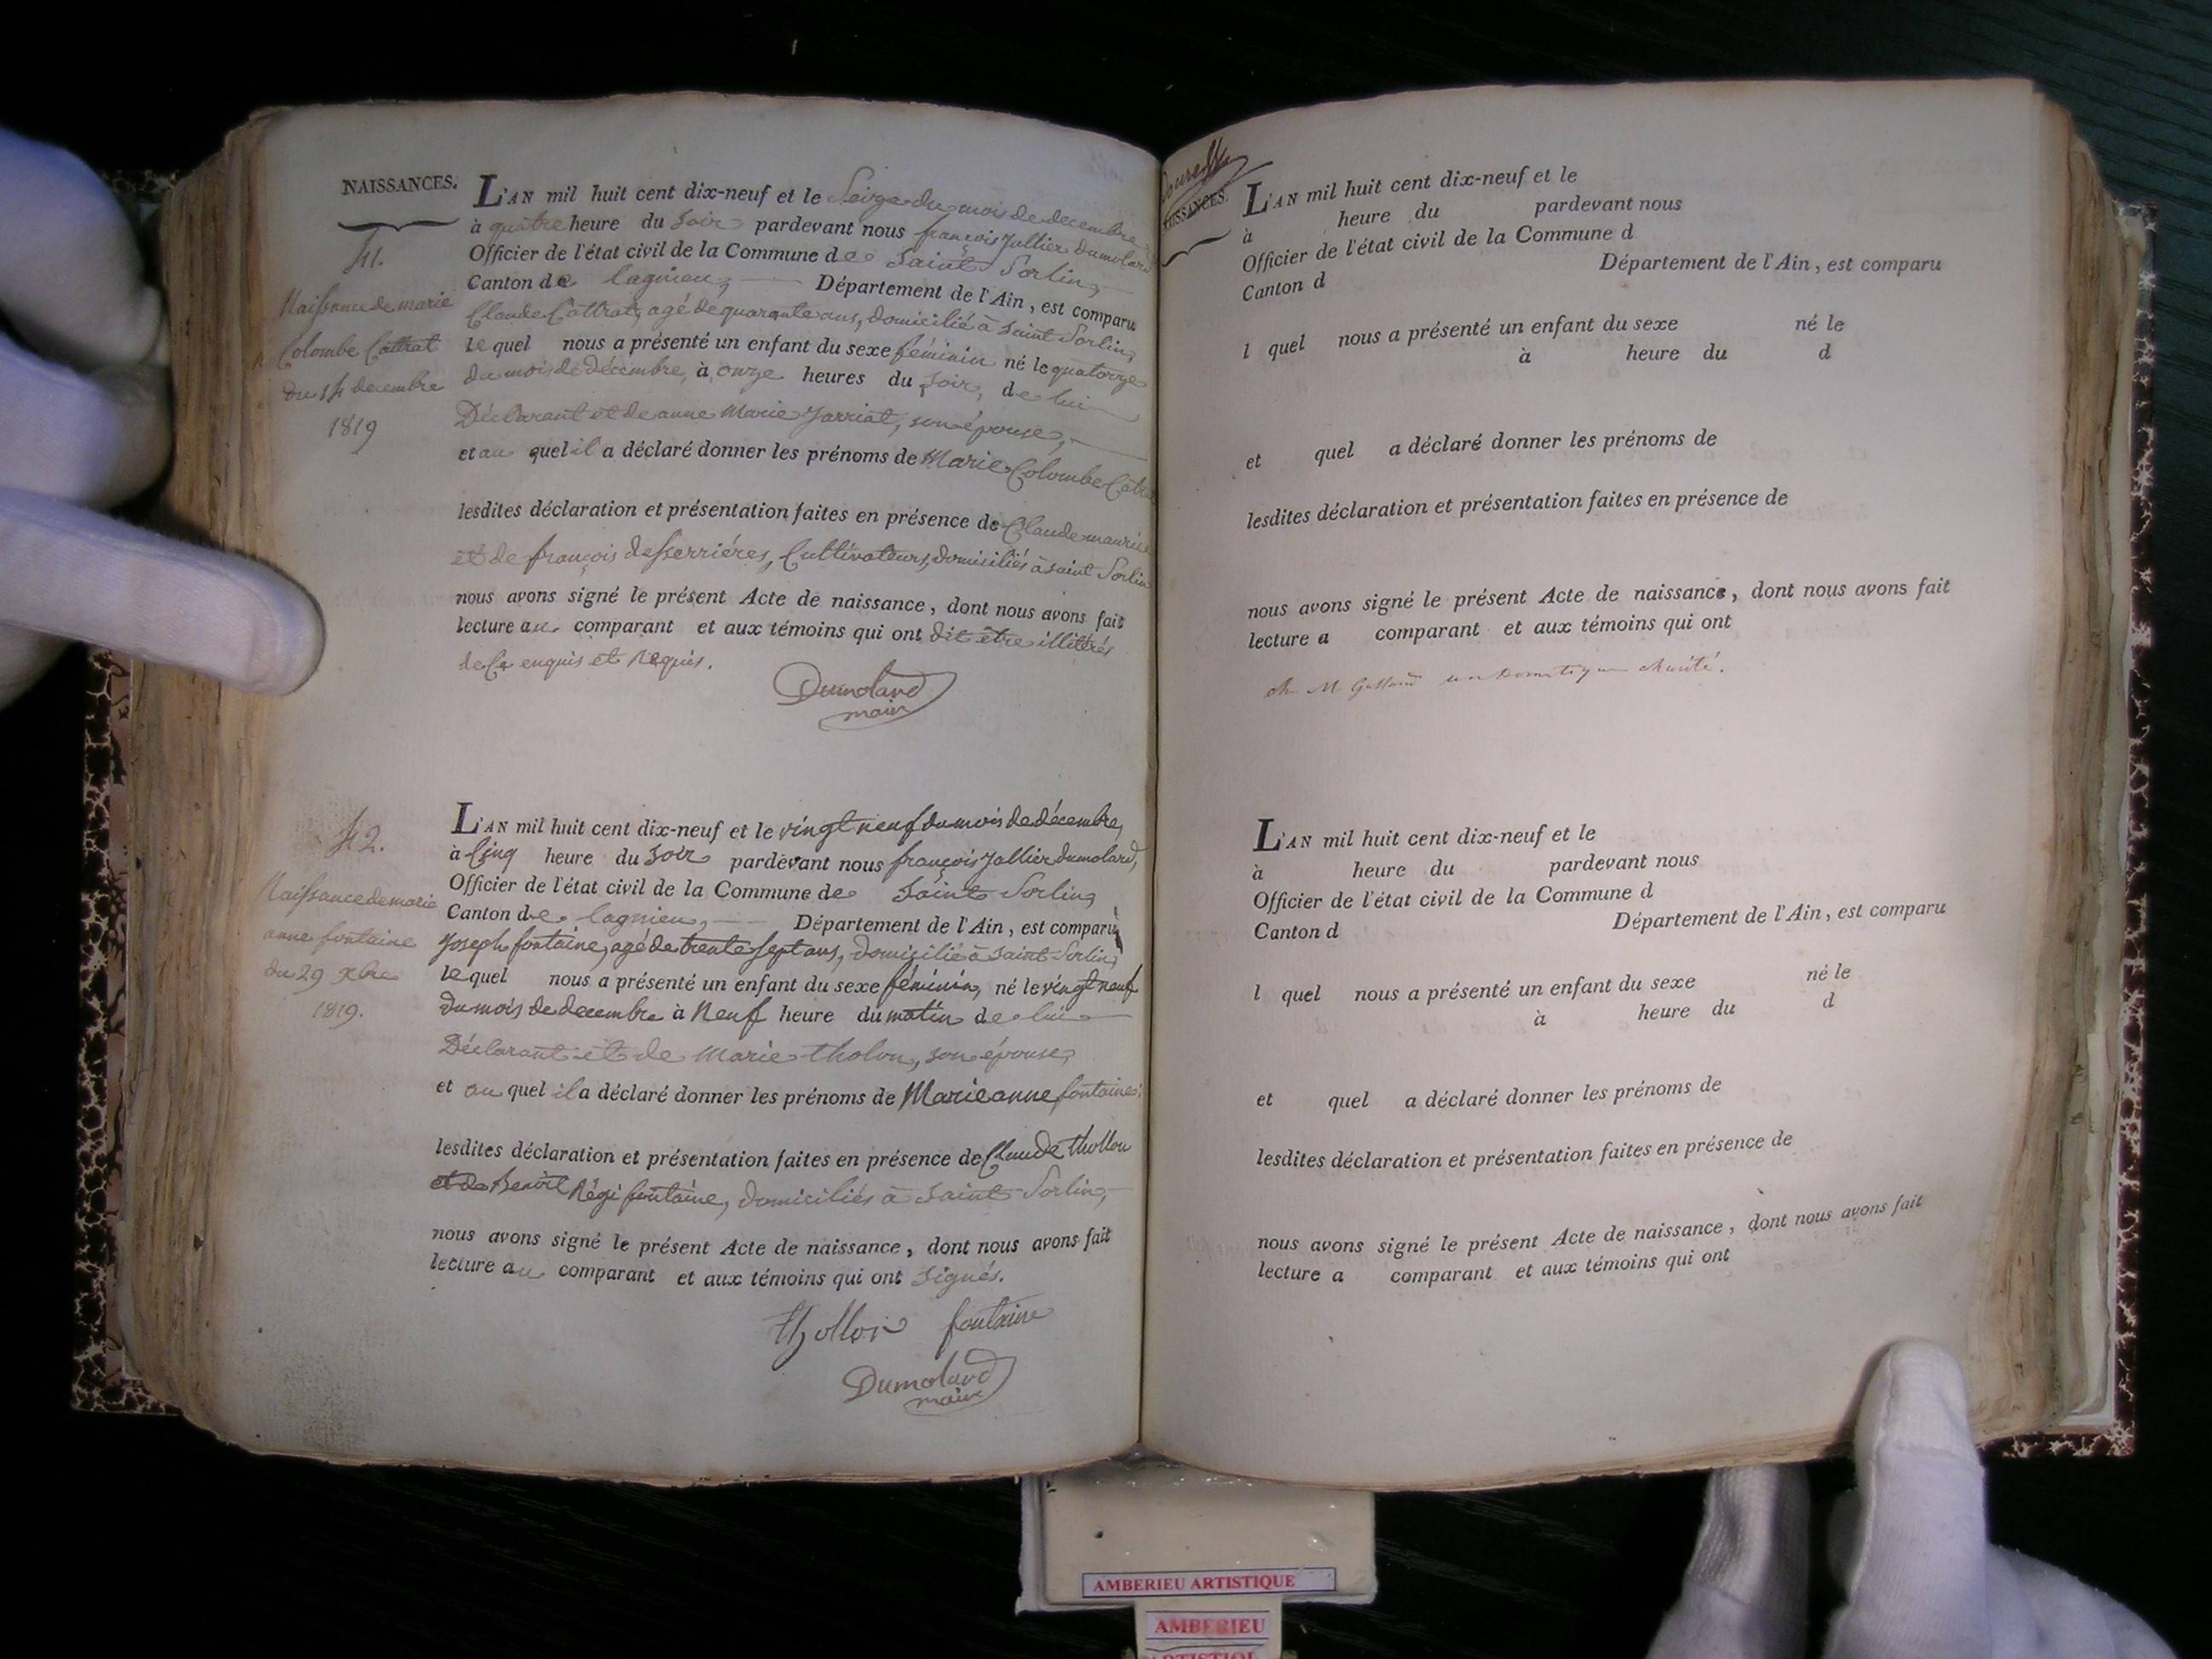 NAISSANCES.
41.
Naissance de marie
Colombe Cottrat
du 14 decembre
1819
L'AN mil huit cent dix-neuf et le Seize du mois de decembre
à quatre heure du soir pardevant nous françois Jullier Dumolard
Officier de l'état civil de la Commune de Saint Sorlin,
Canton de lagnieu, Département de l'Ain, est comparu
Claude Cottrat, agé de quarante ans, domicilié à Saint Sorlin,
le quel nous a présenté un enfant du sexe féminin né le quatorze
du mois de décembre, à onze heures du soir, de lui
Déclarant et de anne Marie Jarriat, son épouse,
et au quel il a déclaré donner les prénoms de Marie Colombe
lesdites déclaration et présentation faites en présence de Claude maurice
et de françois desserriéres, Cultivateurs, domiciliés à saint Sorlin
nous avons signé le présent Acte de naissance, dont nous avons fait
lecture au comparant et aux témoins qui ont dit être illitérés
de ce enquis et requis.
Dumolard
maire
42.
Naissance de marie
anne fontaine
du 29 xbre
1819.
L'AN mil huit cent dix-neuf et le vingt neuf du mois de décembre,
à Cinq heure du soir pardevant nous françois Jullier dumolard,
Officier de l'état civil de la Commune de Saint Sorlin,
Canton de lagnieu, Département de l'Ain, est comparu
Joseph fontaine, agé de trente sept ans, domicilié à saint Sorlin,
le quel nous a présenté un enfant du sexe féminin, né le vingt neuf
du mois de decembre à Neuf heure du matin de lui
Déclarant et de Marie tholon, son épouse,
et au quel il a déclaré donner les prénoms de Marie anne fontaine
lesdites déclaration et présentation faites en présence de Claude thollon
et de Benoit Régi fontaine, domiciliés à Saint Sorlin,
nous avons signé le présent Acte de naissance, dont nous avons fait
lecture au comparant et aux témoins qui ont signés.
thollon fontaine
Dumolard
maire
L'AN mil huit cent dix-neuf et le
à heure du pardevant nous
Officier de l'état civil de la Commune d
Canton d Département de l'Ain, est comparu
l quel nous a présenté un enfant du sexe né le
à heure du d
et quel a déclaré donner les prénoms de
lesdites déclaration et présentation faites en présence de
nous avons signé le présent Acte de naissance, dont nous avons fait
lecture a comparant et aux témoins qui ont
L'AN mil huit cent dix-neuf et le
à heure du pardevant nous
Officier de l'état civil de la Commune d
Canton d Département de l'Ain, est comparu
l quel nous a présenté un enfant du sexe né le
à heure du d
et quel a déclaré donner les prénoms de
lesdites déclaration et présentation faites en présence de
nous avons signé le présent Acte de naissance, dont nous avons fait
lecture a comparant et aux témoins qui ont
AMBERIEU ARTISTIQUE
AMBERIEU